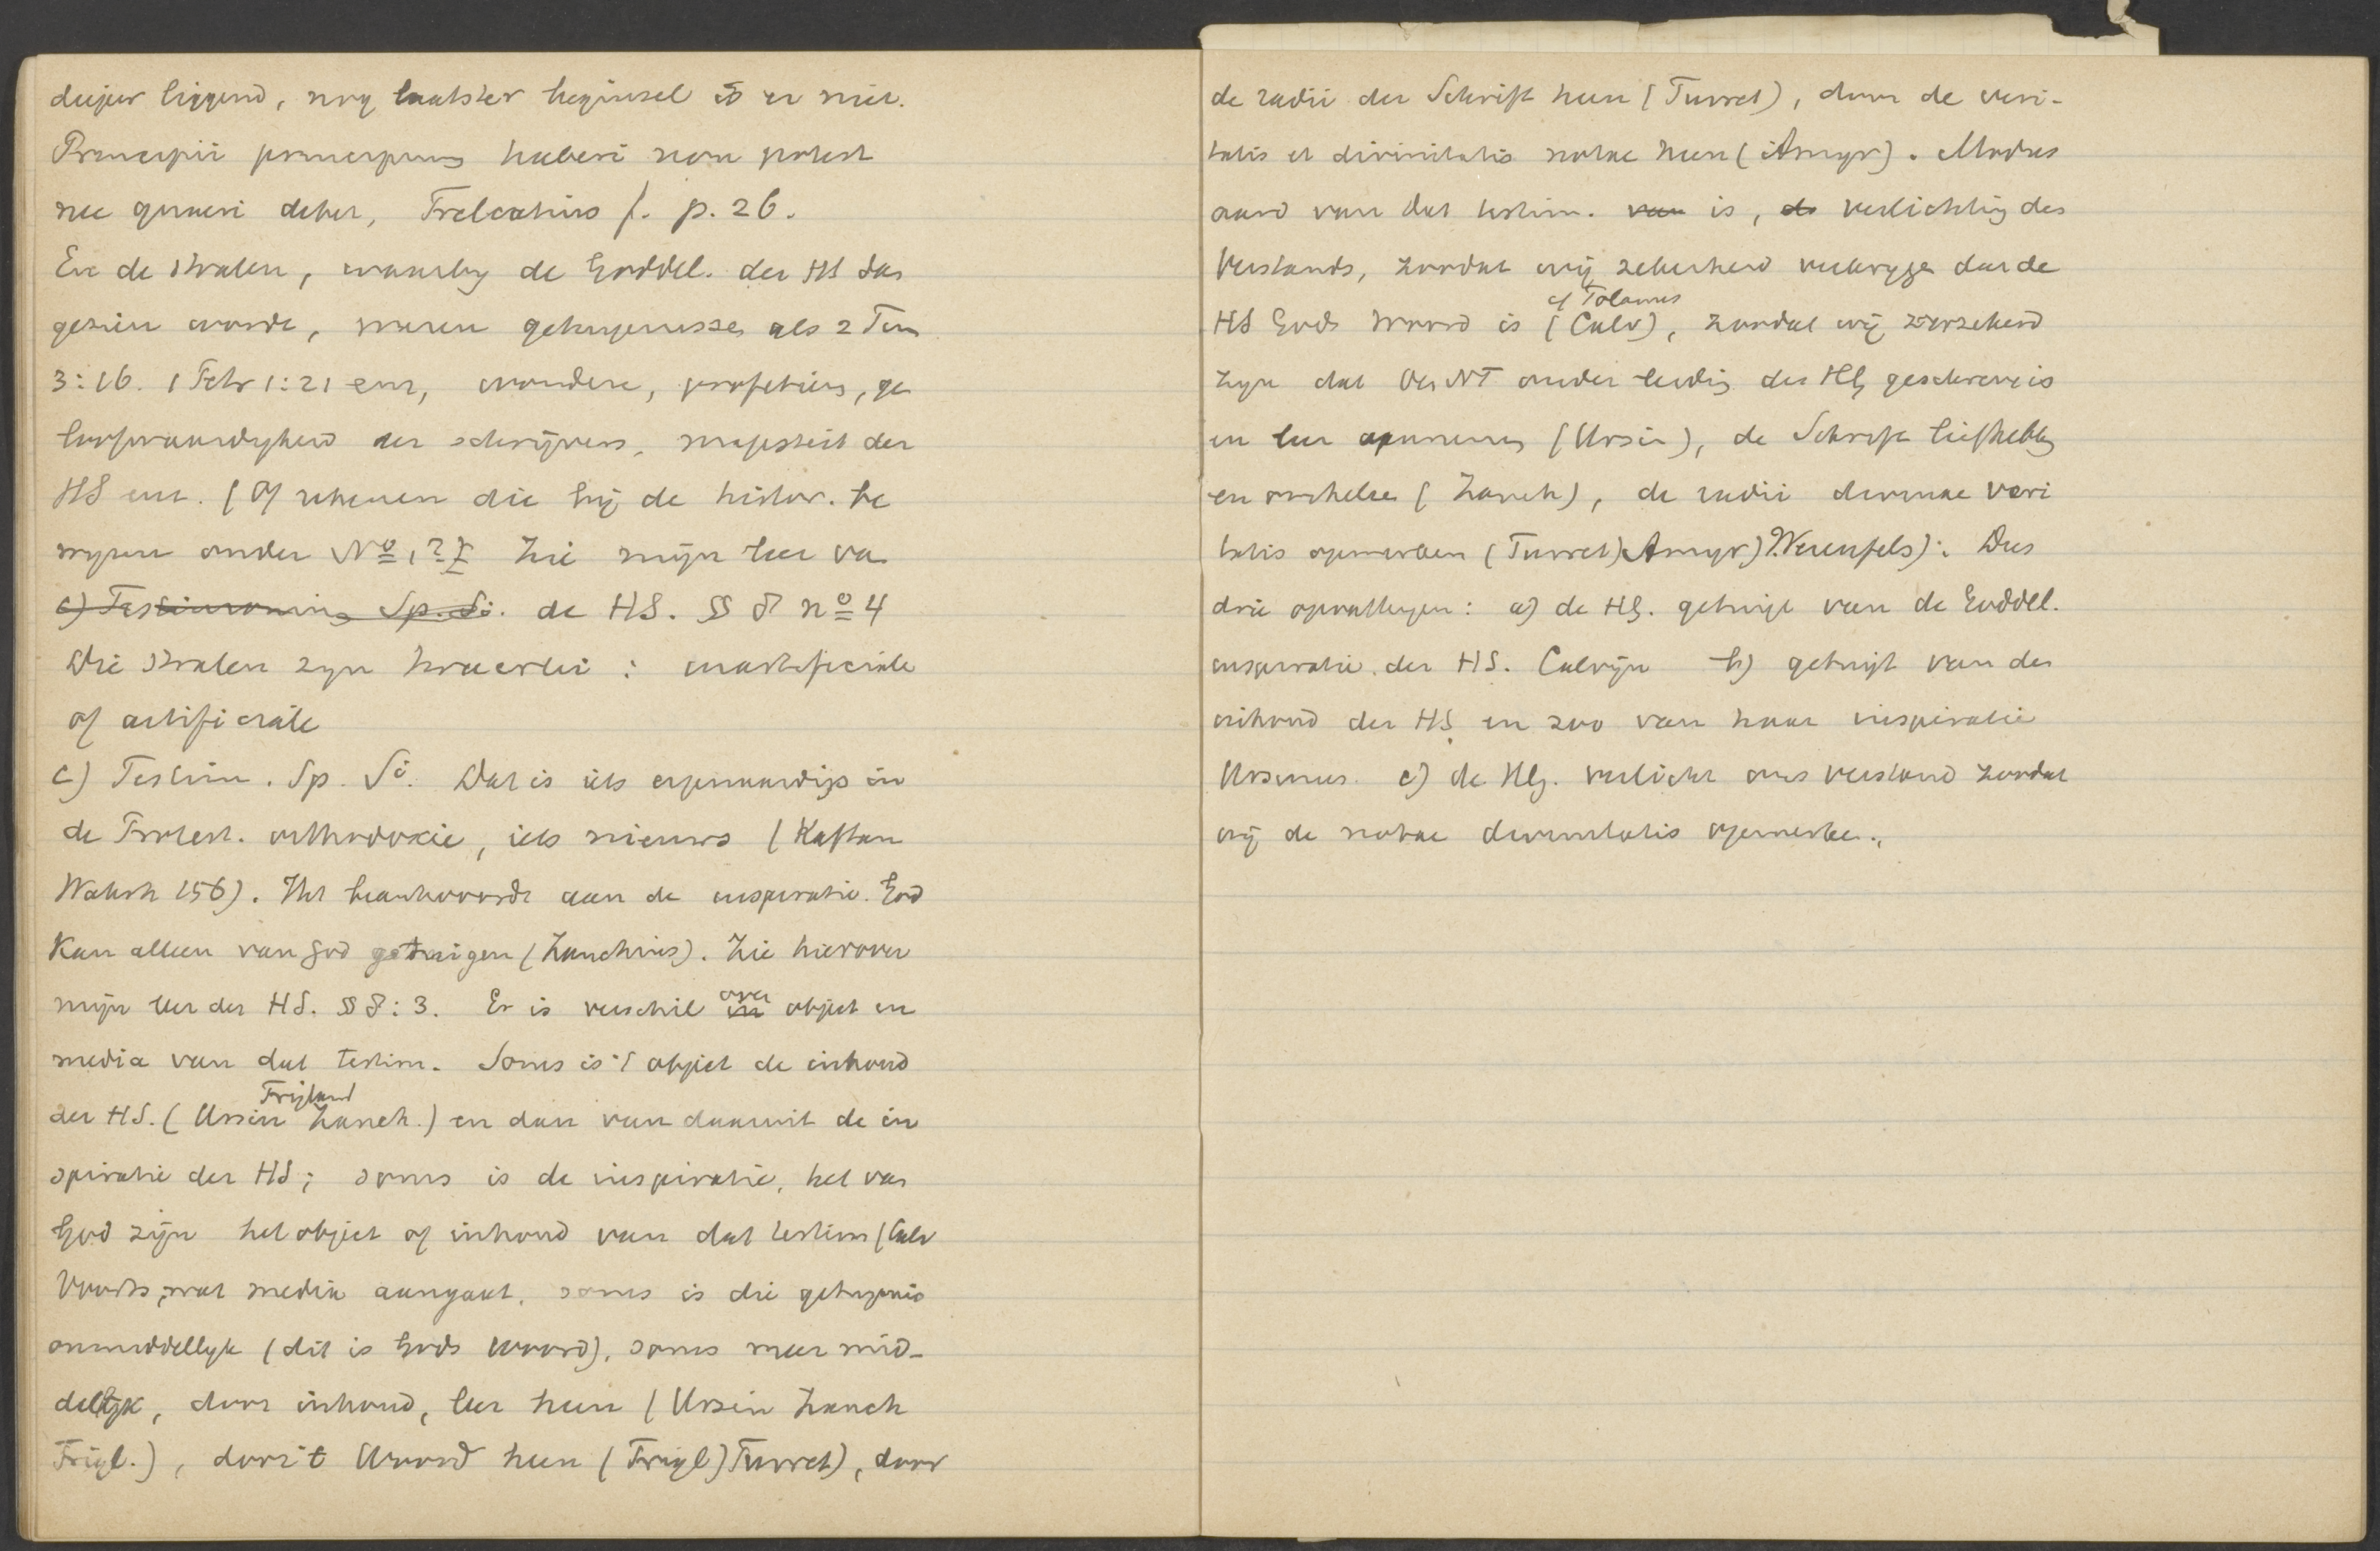 dieper liggend, nog laatster beginsel is er niet.
Principii principium haberi non potest
nec quaeri debet, Trelcatius l. p. 26.
En de stralen, waarby de Goddel. der HS das
gezien worde, waren getuigenisse als 2 Tim
3:16. 1 Petr 1:21 enz, wondere, profetieën, ge
loofwaardigheid der schrijvers, majesteit der
HS enz. (Of rekenen die bij de histor. be
wyzen onder No 1,? Zie mijn leer va
c) Testimonium Sp. Si. de HS. §§ 8 no 4
Die stralen zyn tweeerlei: inartificiale
of artificiale
c) Testim. Sp. Si. Dat is iets eigenaardigs in
de Protest. orthodoxie, iets nieuws (Kaftan
Wahrh 156). Het beantwoordt aan de inspiratie. God
Kan alleen van God getuigen (Zanchius). Zie hierover
mijn leer der HS. §§ 8:3. Er is verschil in over object en
media van dat testim. Soms is 't object de inhoud
der HS. (Ursin Trigland Zanch.) en dan van daaruit de in
spiratie der HS; soms is de inspiratie, het van
God zijn het object of inhoud van dat testim (Calv
Voorts, wat media aangaat, soms is die getuigenis
onmiddellyk (dit is Gods woord), soms meer mid-
dellyk, door inhoud, leer heen (Ursin Zanch
Trigl.), door 't Woord heen (Trigl) Turret), door
de radii der Schrift heen (Turret), door de veri-
tatis et divinitatis notae heen (Amyr). Modus
aard van dat testim. van is, de verlichting des
Verstands, zoodat wij zekerheid verkryge dat de
HS Gods Woord is (Calv), cf Tolanus zoodat wij verzekerd
zyn dat O en NT onder leidig des HG geschreve is
en leer aannemen (Ursin), de Schrift liefhebbe
en omhelse (Zanch), de radii divinae veri
tatis opmerken (Turret) Amyr) Werenfels). Dus
drie opvattingen: a) de HG. getuige van de Goddel.
inspiratie der HS. Calvijn b) getuigt van den
inhoud der HS en zoo van haar inspiratie
Ursinus. c) de HG. verlicht ons verstand zoodat
wij de notae divinitatis opmerke.